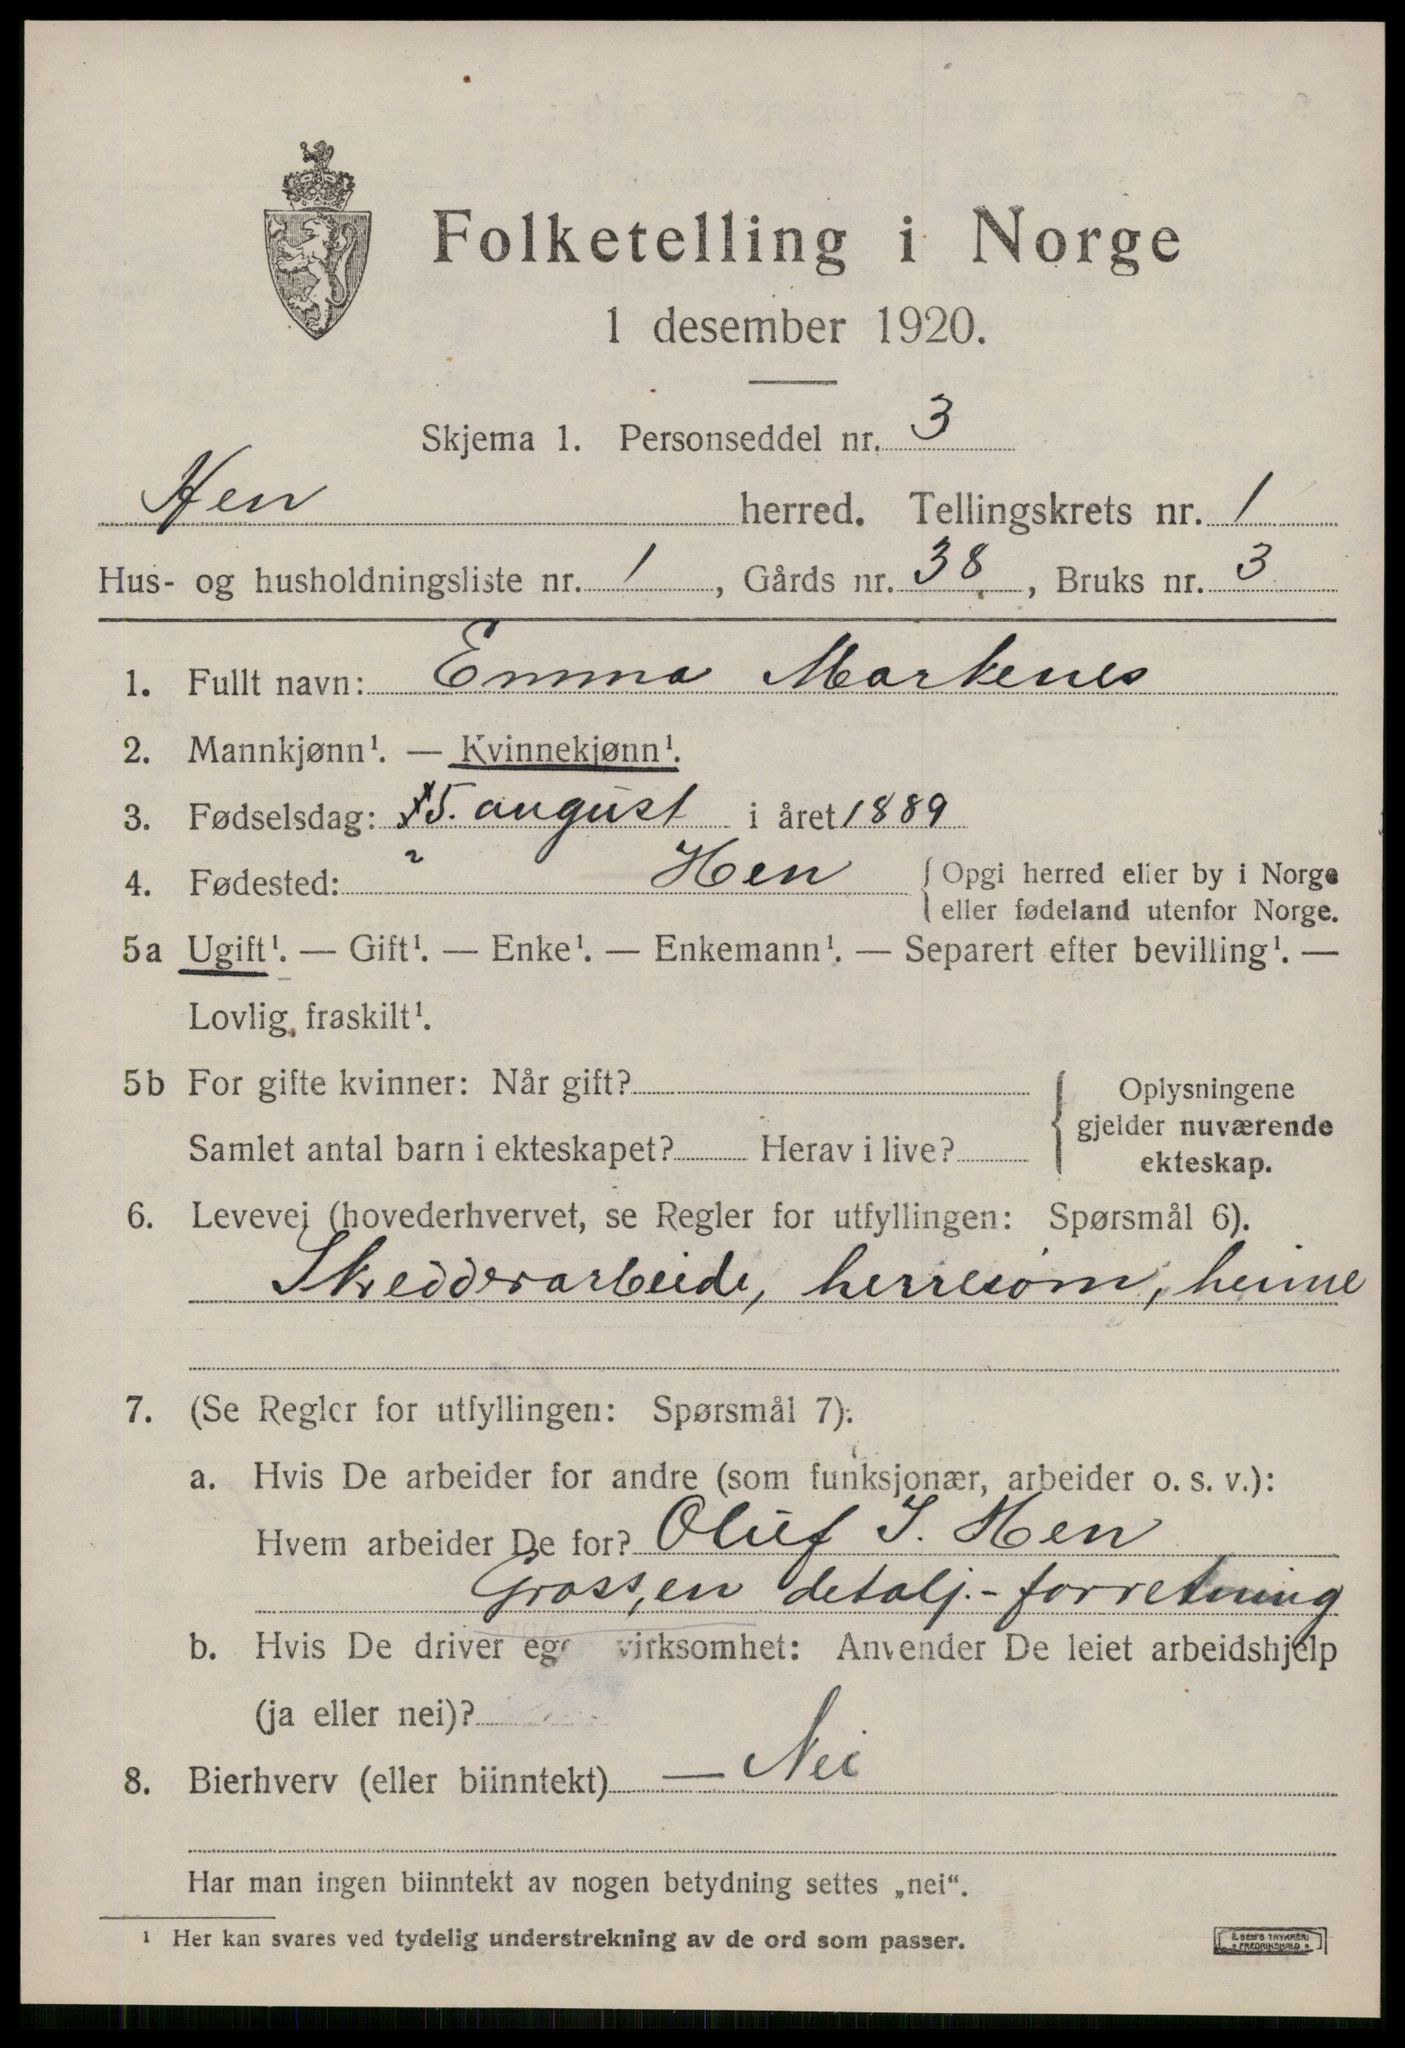 Folketelling i Norge
1 desember 1920.
Skjema 1. Personseddel nr. 3
Hen herred. Tellingskrets nr. 1
Hus- og husholdningsliste nr. 1, Gårds nr. 38, Bruks nr. 3
1. Fullt navn: Emma Markenes
2. Mannkjønn¹. — Kvinnekjønn¹.
3. Fødselsdag: 15. august i året 1889
4. Fødested: Hen { Opgi herred eller by i Norge
eller fødeland utenfor Norge.
5a Ugift¹. — Gift¹. — Enke¹. — Enkemann¹. — Separert efter bevilling¹. —
Lovlig fraskilt¹.
5b For gifte kvinner: Når gift? Oplysningene
gjelder nuværende
Samlet antal barn i ekteskapet? Herav i live? ekteskap.
6. Levevei (hovederhvervet, se Regler for utfyllingen: Spørsmål 6).
Skredderarbeide, herresöm, heime
7. (Se Regler for utfyllingen: Spørsmål 7).
a. Hvis De arbeider for andre (som funksjonær, arbeider o. s. v.):
Hvem arbeider De for? Oluf I. Hen
Gross, en detalj.-forretning
b. Hvis De driver egen virksomhet: Anvender De leiet arbeidshjelp
(ja eller nei)?
8. Bierhverv (eller biinntekt) — Nei
Har man ingen biinntekt av nogen betydning settes „nei“.
¹ Her kan svares ved tydelig understrekning av de ord som passer.
E. SEM'S TRYKKERI
FREDRIKSHALD